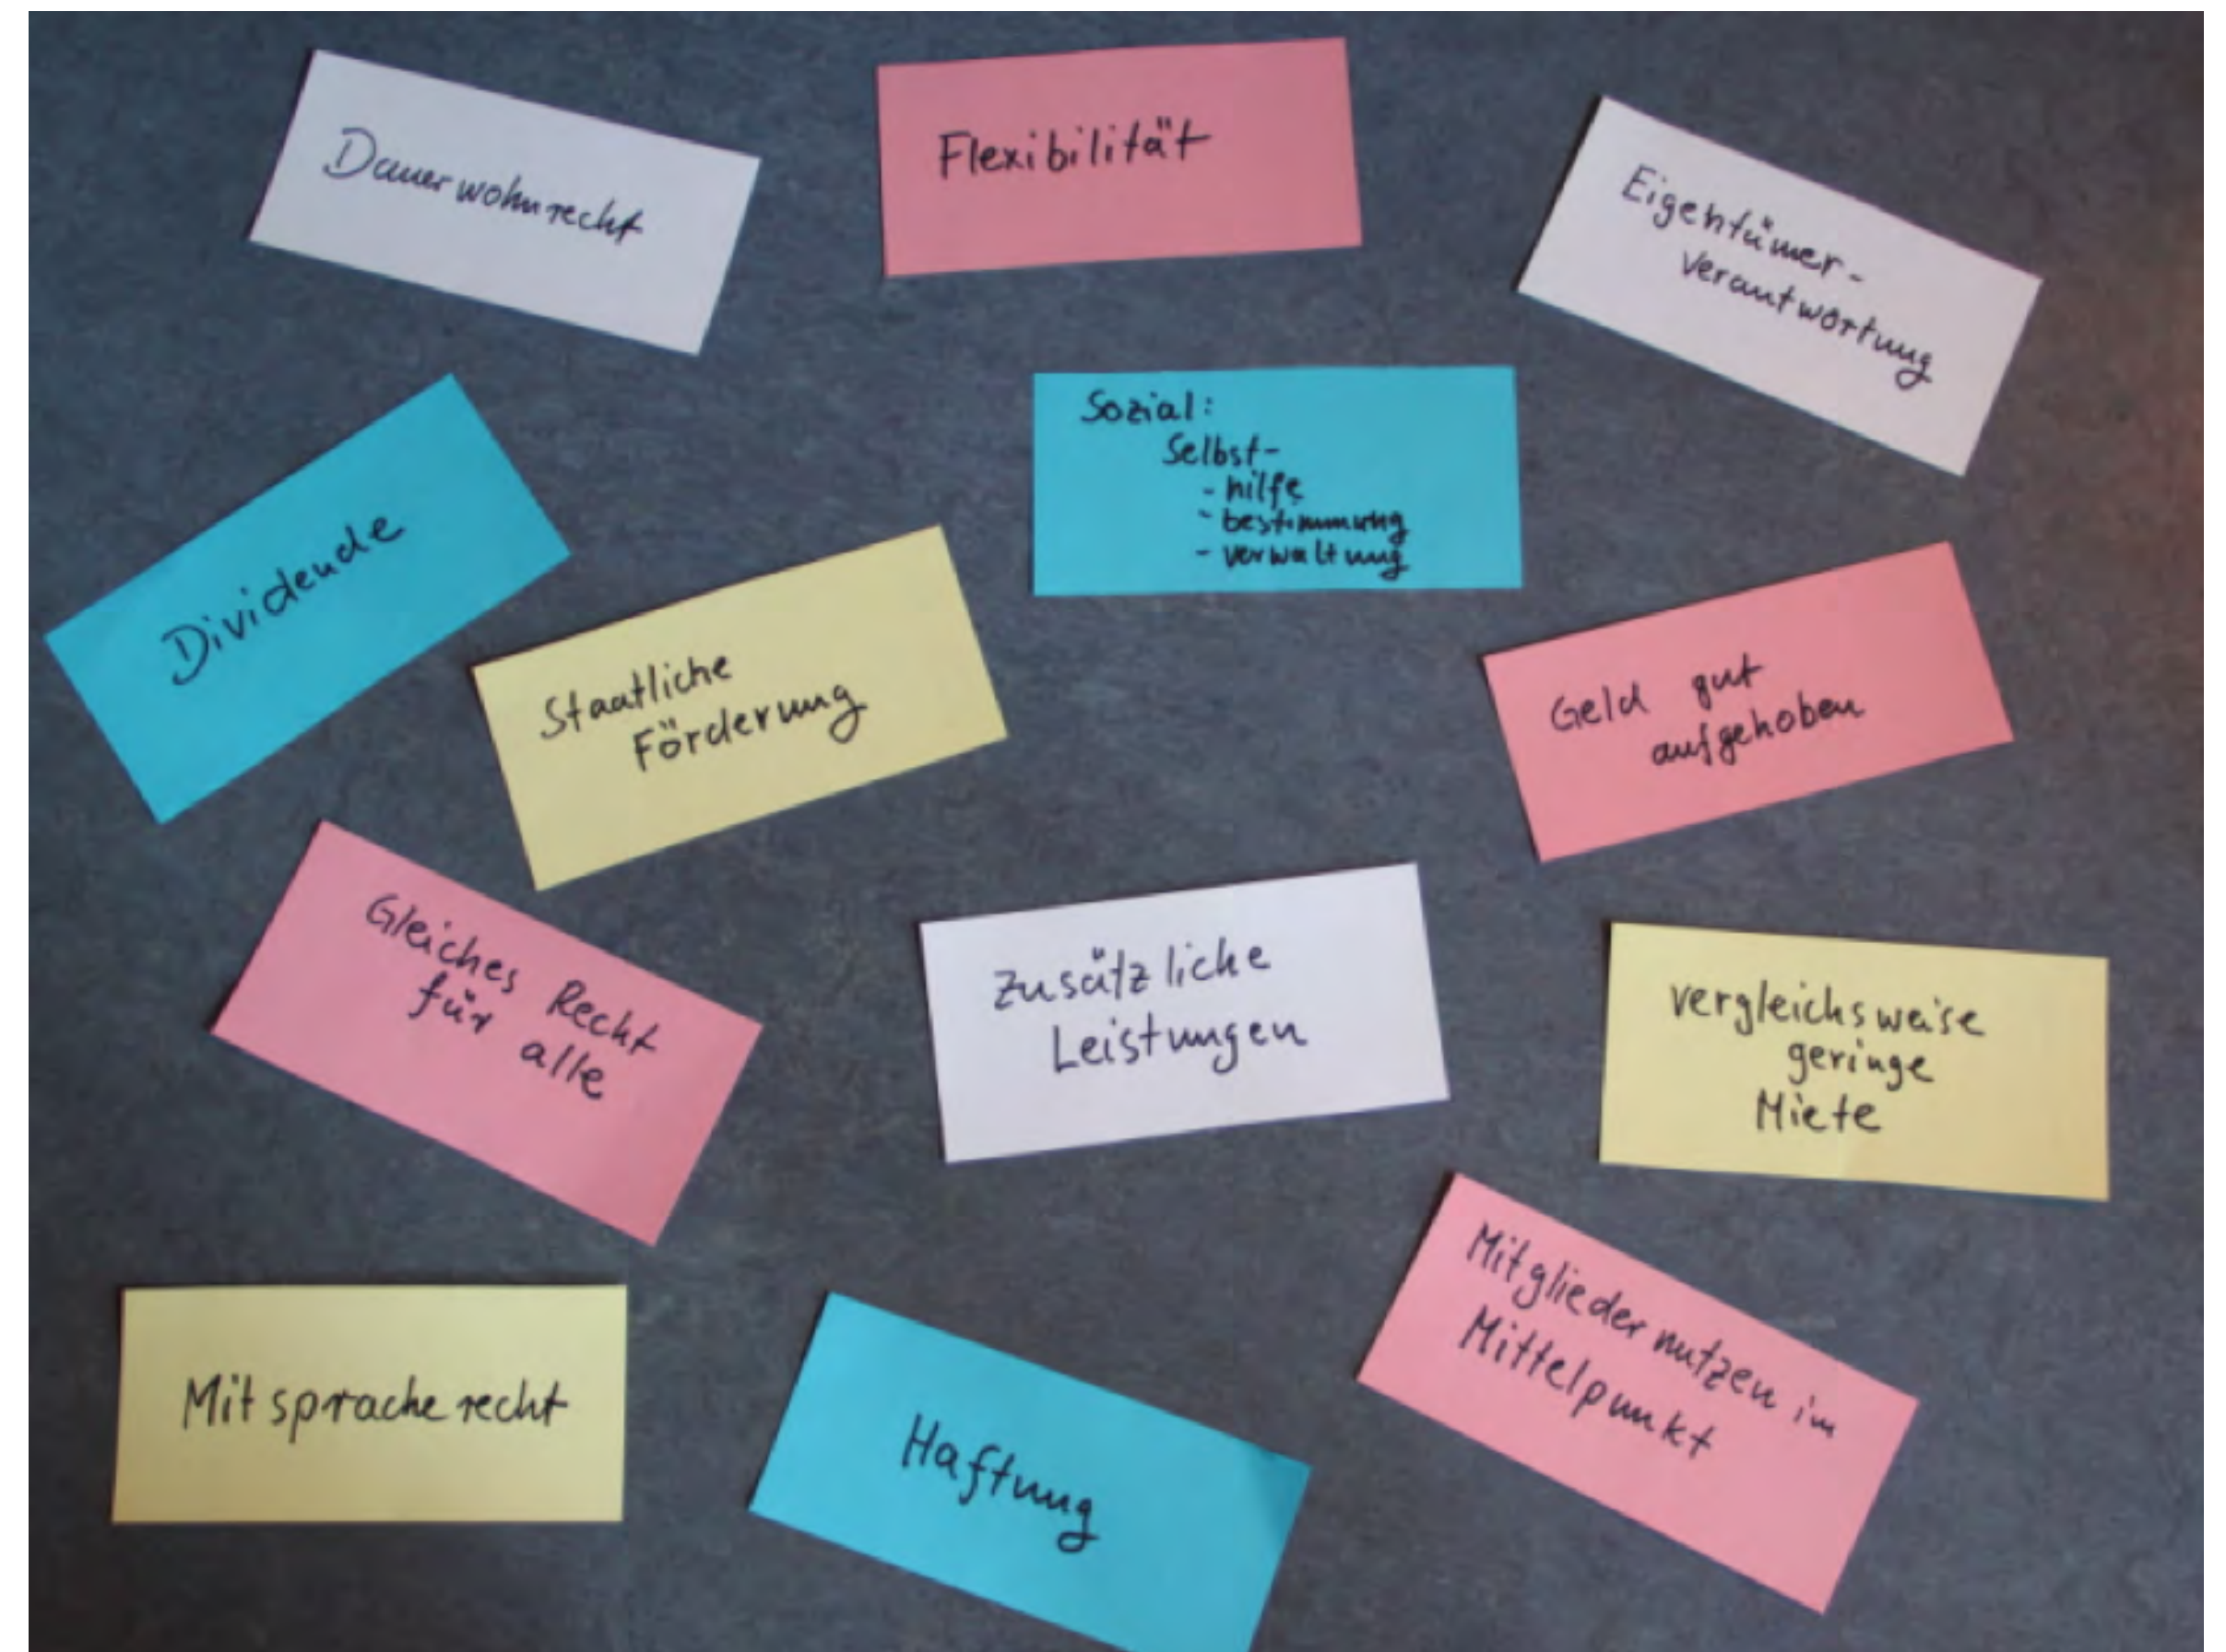 Dauerwohnrecht
Flexibilität
Eigentümer-
verantwortung
Sozial:
Selbst-
- hilfe
- bestimmung
- verwaltung
Dividende
Staatliche
Förderung
Geld gut
aufgehoben
Gleiches Recht
für alle
Zusätzliche
Leistungen
vergleichsweise
geringe
Miete
Mitspracherecht
Haftung
Mitgliedernutzen im
Mittelpunkt